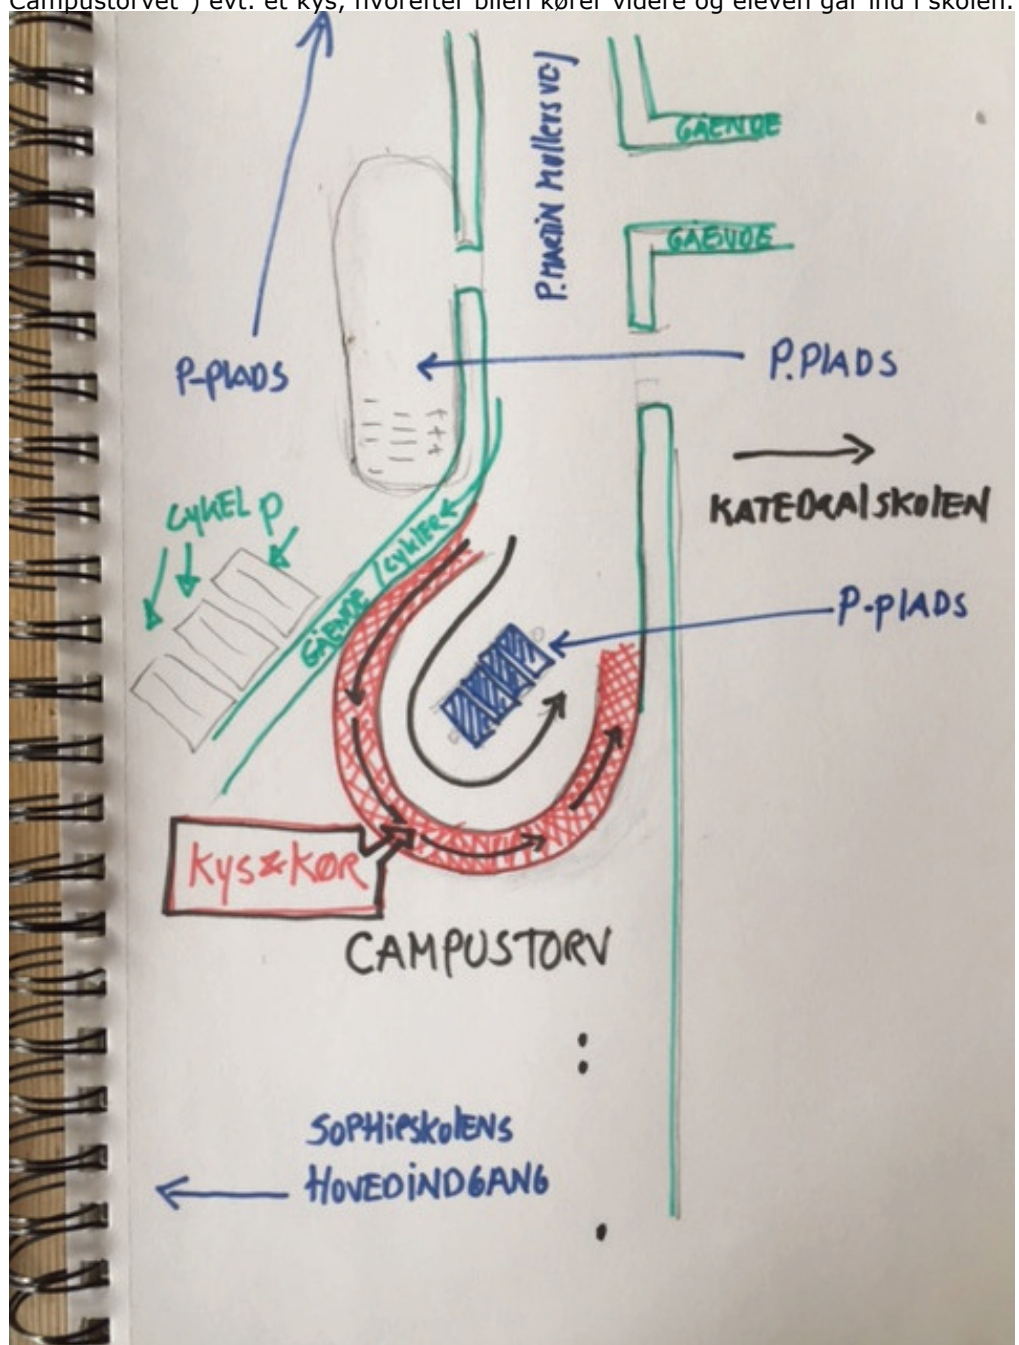 Campustorvet") evt. et kys, hvorefter bilen kører videre og eleven går ind i skolen.
GÅENDE
P. MARTIN Møllers VEJ
GÅENDE
P-PLADS
P.PLADS
CYKEL P
KATEDRALSKOLEN
GÅENDE / CYKLER
P-PLADS
KYS & KØR
CAMPUSTORV
SOPHIESKOLENS
HOVEDINDGANG